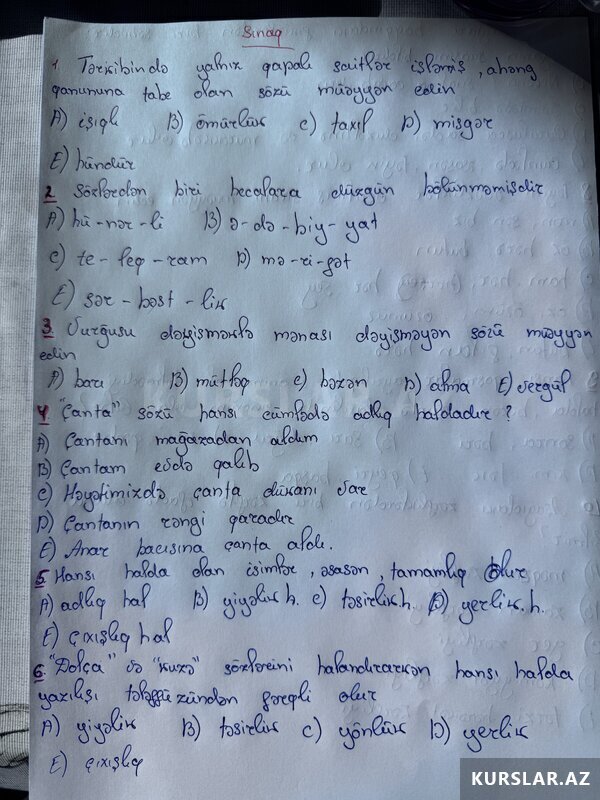 Sınaq
1. Tərkibində yalnız qapalı saitlər işlənmiş, ahəng
qanununa tabe olan sözü müəyyən edin
A) işıqlı B) ömürlük C) taxıl D) misgər
E) hündür
2 Sözlərdən biri hecalara düzgün bölünməmişdir
A) hü-nər-li B) ə-də-biy-yat
C) te-leq-ram D) mə-ri-fət
E) sər-bəst-lik
3 Vurğusu dəyişməklə mənası dəyişməyən sözü müəyyən
edin
A) barı B) mütləq C) bəzən D) alma E) vergül
4 "Çanta" sözü hansı cümlədə adlıq haldadır?
A) Çantanı mağazadan aldım
B) Çantam evdə qalıb
C) Həyətimizdə çanta dükanı var
D) Çantanın rəngi qaradır
E) Anar bacısına çanta aldı.
5 Hansı halda olan isimlər, əsasən, tamamlıq olur
A) adlıq hal B) yiyəlik h. C) təsirlik.h. D) yerlik.h.
E) çıxışlıq hal
6. "Dolça" və "kuzə" sözlərini hallandırarkən hansı halda
yazılışı tələffüzündən fərqli olur
A) yiyəlik B) təsirlik C) yönlük D) yerlik
E) çıxışlıq
KURSLAR.AZ